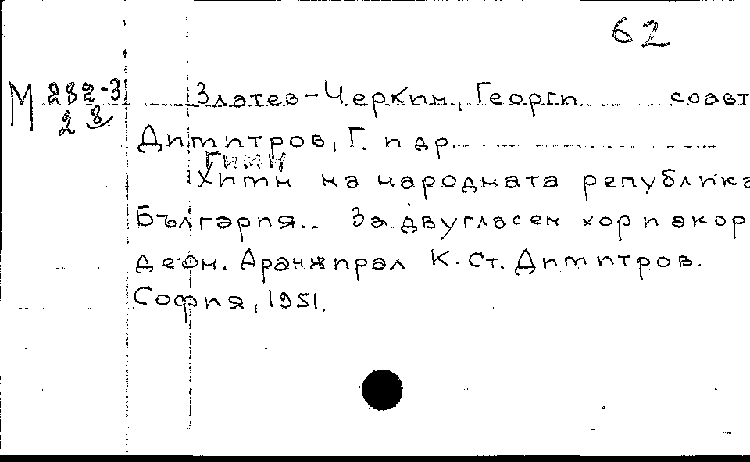 62
М 282-3 Златев-Черкин, Георги соавт
28 Димитров, Г. и др.
Гимн
Химн на народната република
България.. За двугласен хор и акор
деон. Аранжирал К. Ст. Димитров.
София, 1951.